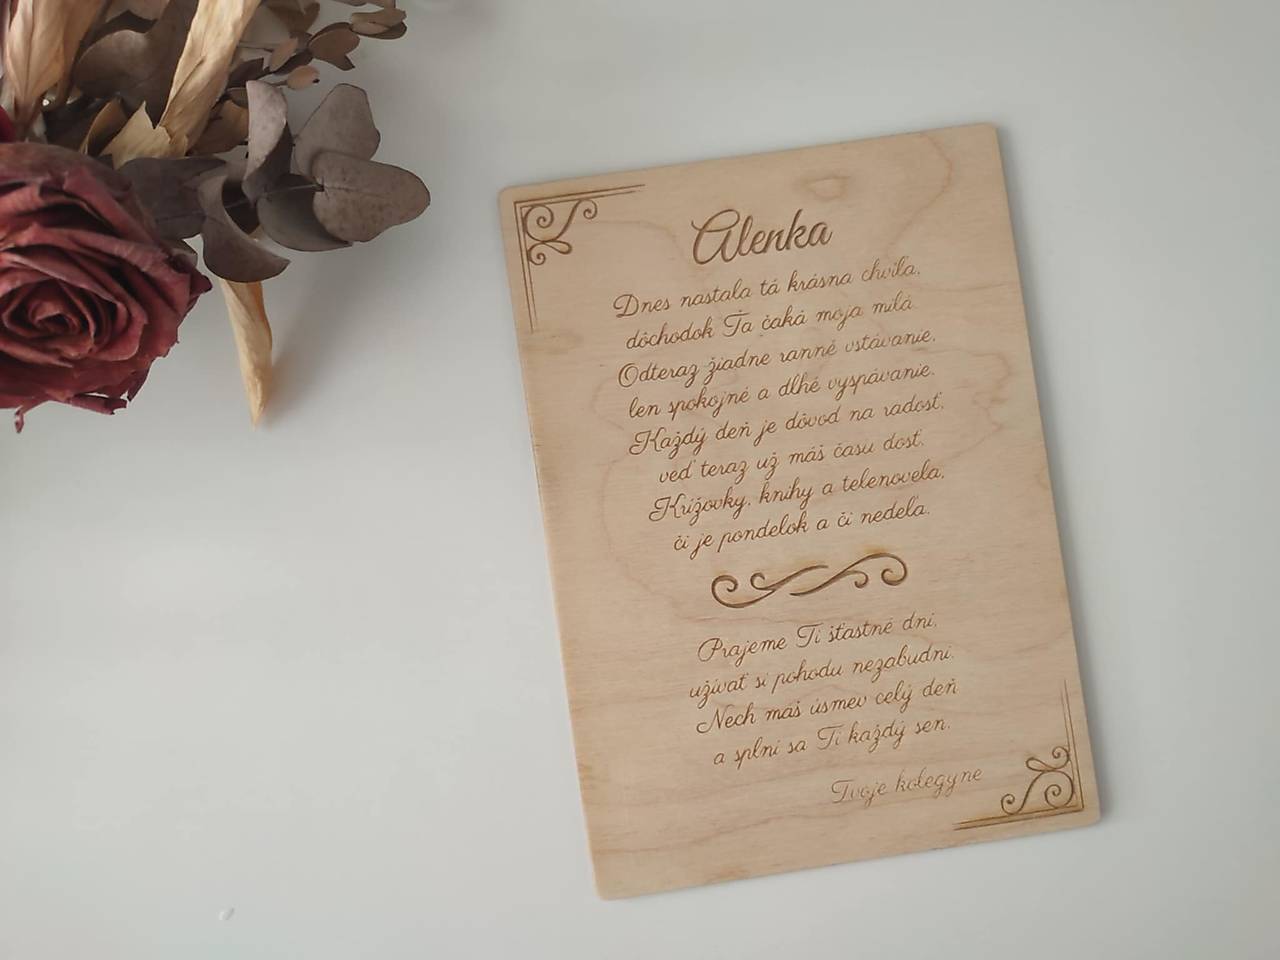 Alenka
Dnes nastala tá krásna chvíla,
dôchodok Ťa čaká moja milá.
Odteraz žiadne ranné vstávanie,
len spokojné a dlhé vyspávanie.
Každý deň je dôvod na radosť,
veď teraz už máš času dosť.
Krížovky, knihy a telenovela,
či je pondelok a či nedeľa.
Prajeme Ti šťastné dni,
užívať si pohodu nezabudni.
Nech máš úsmev celý deň
a splní sa Ti každý sen.
Tvoje kolegyne